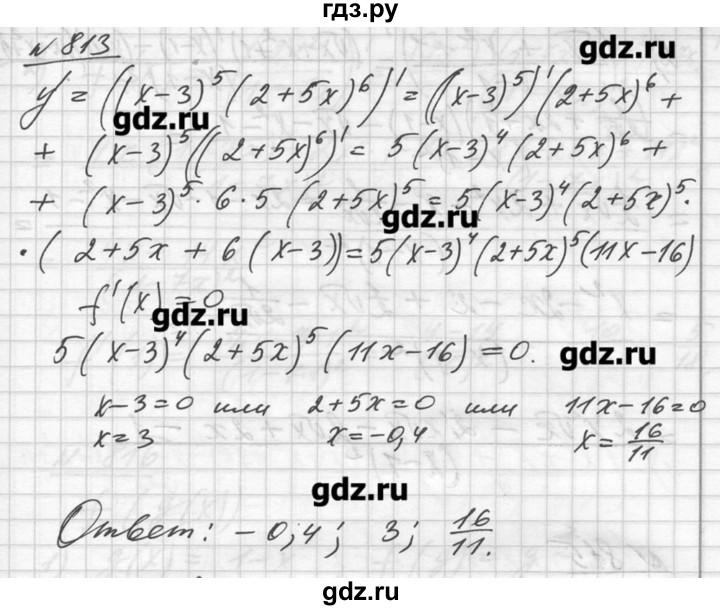 гдз.ру
№ 813
gdz.ru
y' = ((x-3)^5 (2+5x)^6)' = ((x-3)^5)' (2+5x)^6 +
gdz.ru
+ (x-3)^5 ((2+5x)^6)' = 5(x-3)^4 (2+5x)^6 +
+ (x-3)^5 · 6 · 5 (2+5x)^5 = 5(x-3)^4 (2+5x)^5 ·
gdz.ru
· (2+5x + 6(x-3)) = 5(x-3)^4 (2+5x)^5 (11x-16)
f'(x) = 0
gdz.ru
5(x-3)^4 (2+5x)^5 (11x-16) = 0.
gdz.ru
x-3=0 или 2+5x=0 или 11x-16=0
x=3 x=-0,4 x=16/11
gdz.ru
Ответ: -0,4; 3; 16/11.
gdz.ru